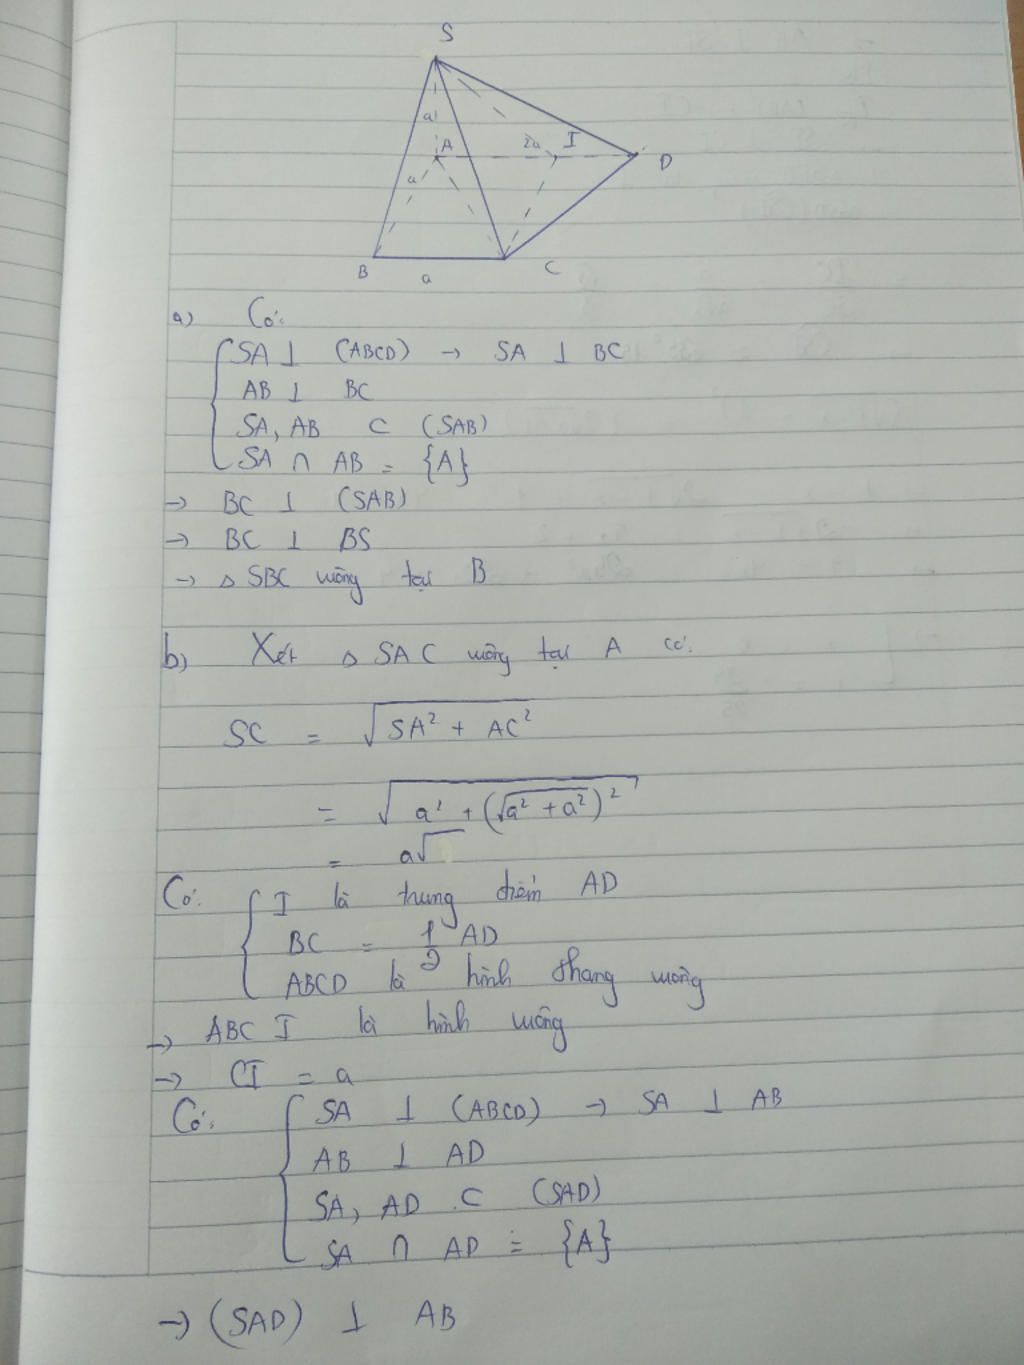 S
a
A
2a
I
D
a
B
a
C
a) Có:
SA ⊥ (ABCD) → SA ⊥ BC
AB ⊥ BC
SA, AB ⊂ (SAB)
SA ∩ AB = {A}
→ BC ⊥ (SAB)
→ BC ⊥ BS
→ △ SBC vuông tại B
b) Xét △ SAC vuông tại A có:
SC = √(SA² + AC²)
= √(a² + (√(a² + a²))²)
= a√
Có: I là trung điểm AD
BC = 1/2 AD
ABCD là hình thang vuông
→ ABC I là hình vuông
→ CI = a
Có: SA ⊥ (ABCD) → SA ⊥ AB
AB ⊥ AD
SA, AD ⊂ (SAD)
SA ∩ AD = {A}
→ (SAD) ⊥ AB